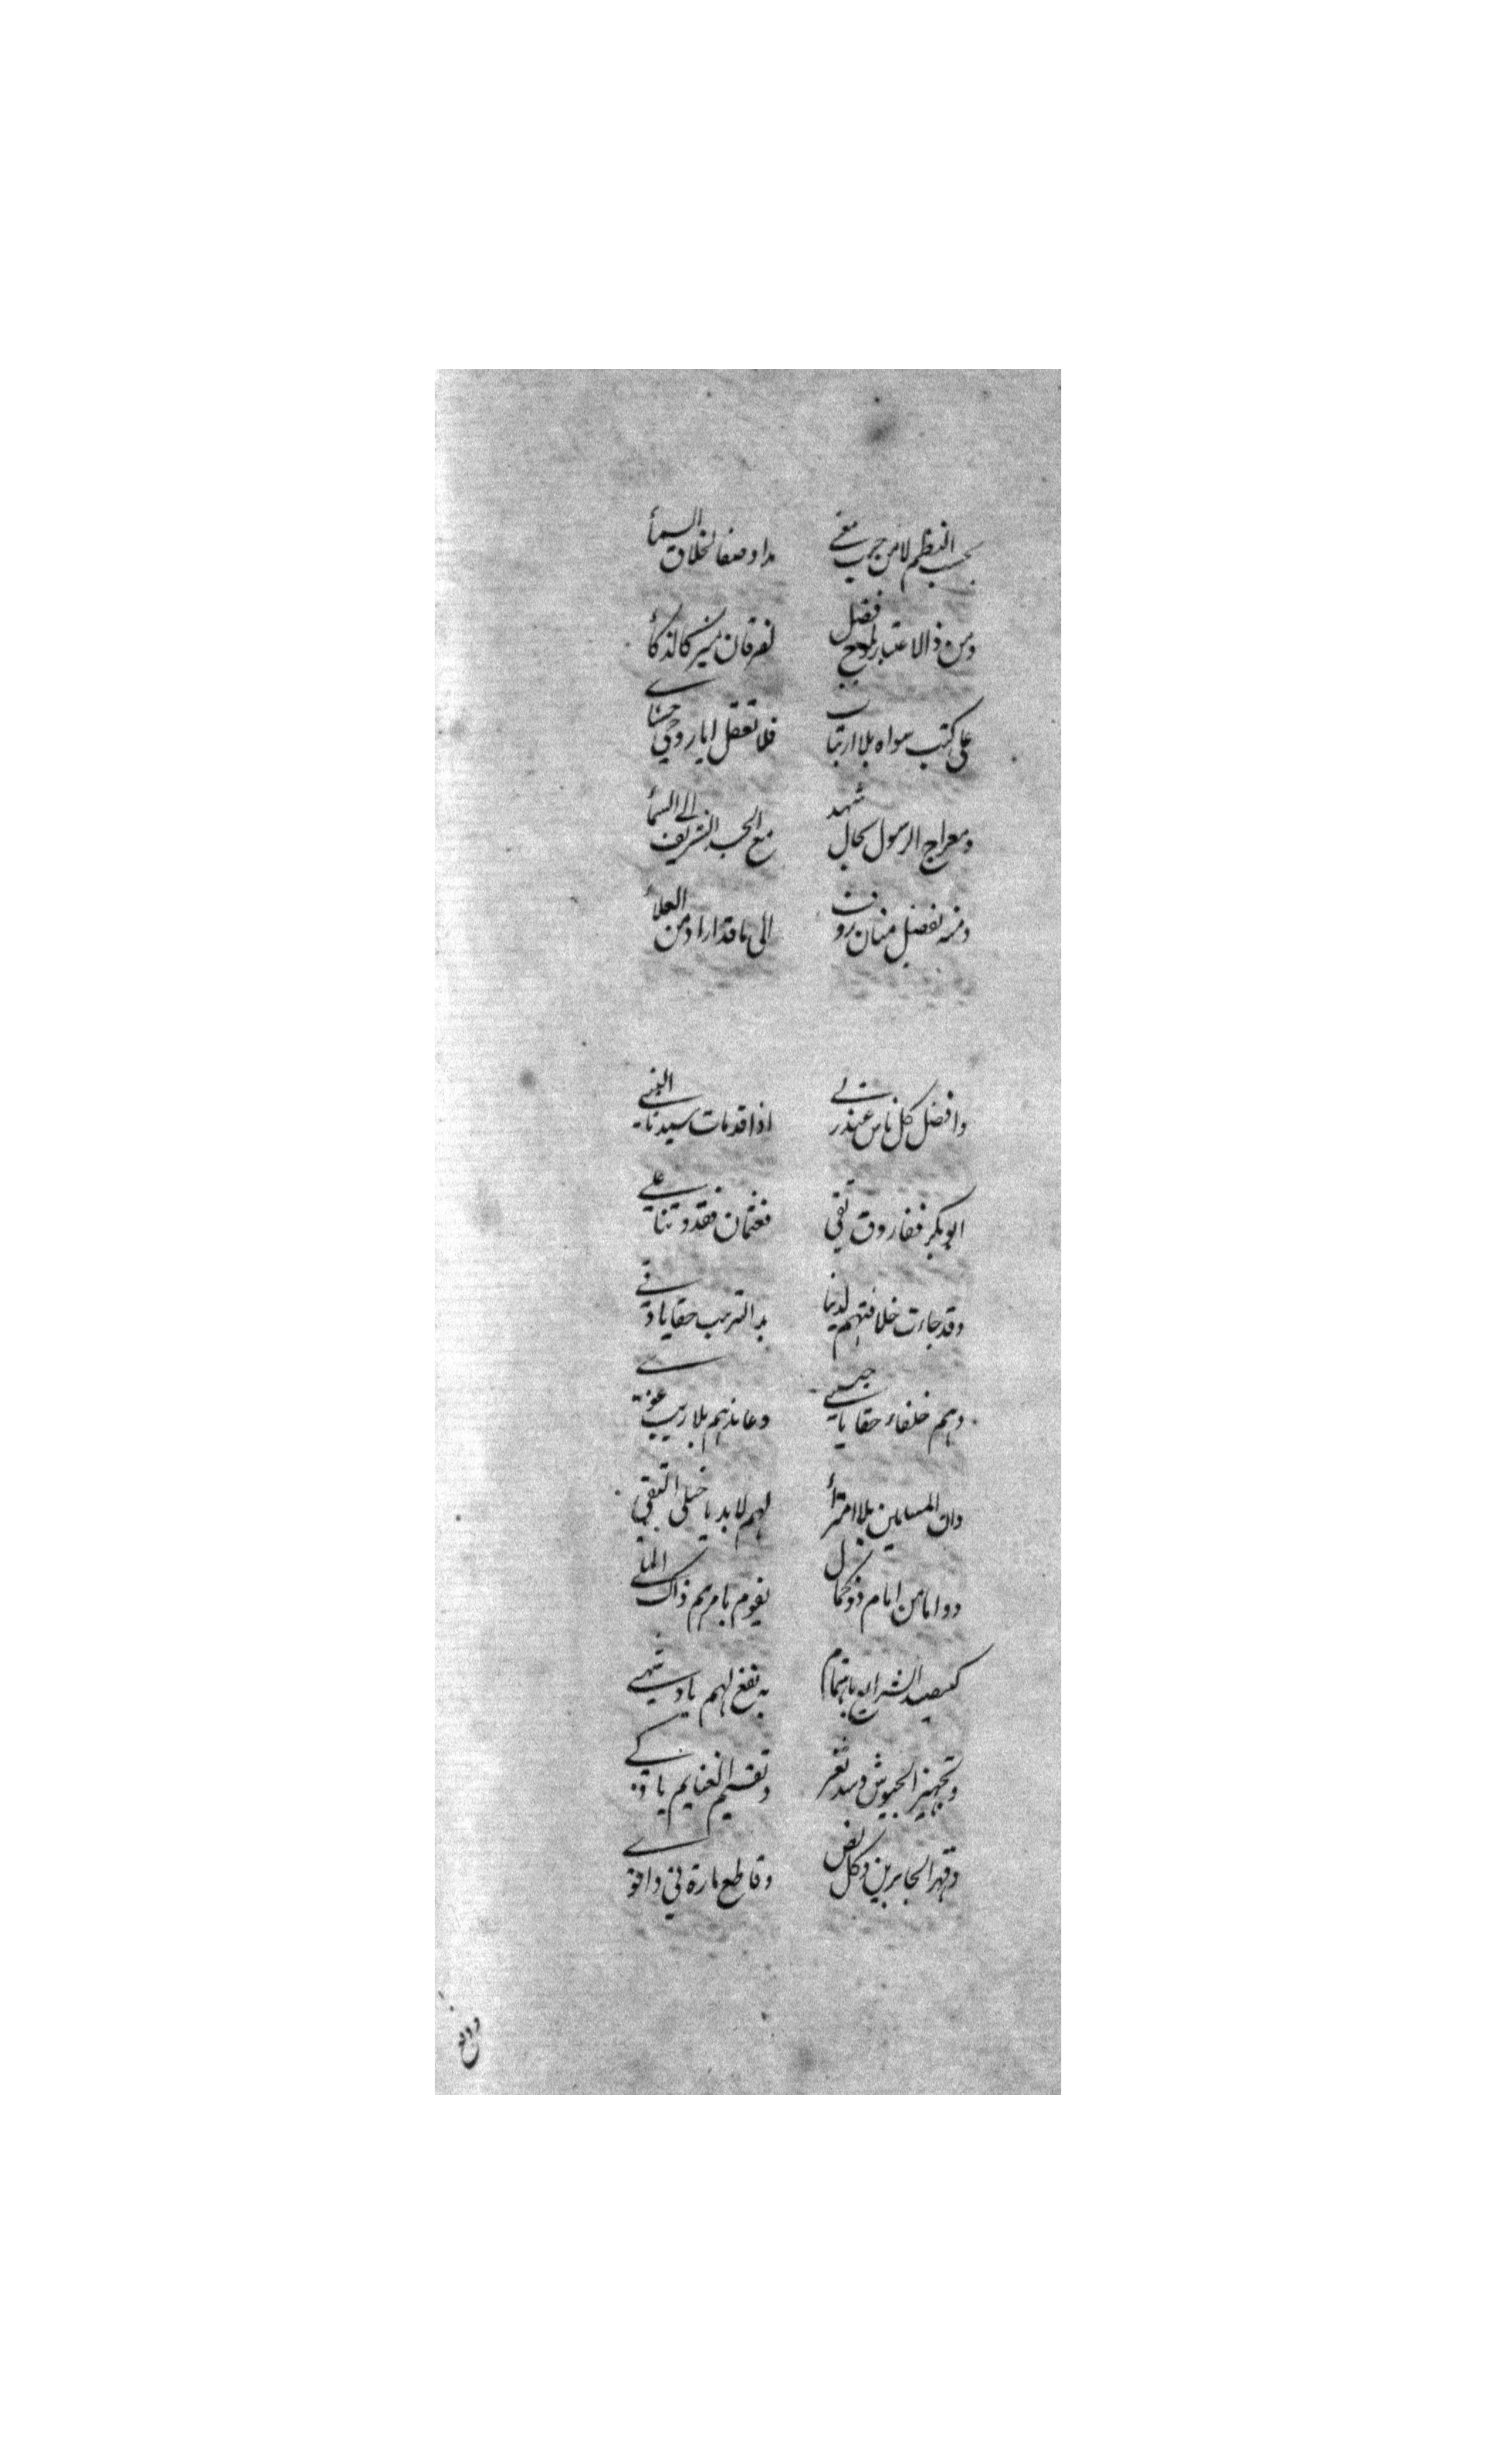 بحسب النظم لا من حيث معنى
مدا وصفا لخلاق السمأ
ومن ذالاعتبار لمدح فضل
لفرقان منير كالذكأ
على كتب سواه بلا ارتياب
فلا تعقل ايا روحي
ومعراج الرسول بحال شهد
مع الجسد الشريف الى السمأ
ومنه بفضل منان رؤف
الى ما قد اراد من العلا
وافضل كل ناس عند ربي
اذا قد مات سيدنا النبي
ابو بكر ففاروق تقي
فعثمان فقدوتنا علي
وقد جاءت خلافتهم لدينا
بذا الترتيب حقا يا
وهم خلفاء حقا يا حبيبي
وعاندهم بلا ريب غوي
وان المسلمين بلا امترأ
لهم لا بد يا خلي التقي
دواما من امام ذو كمال
يقوم بامرهم ذاك
باهتمام
به نفع لهم يا
وتجهيز الجيوش وسد ثغر
وتقسيم الغنايم يا
وقهر الجابرين وكل لص
وقاطع مارة